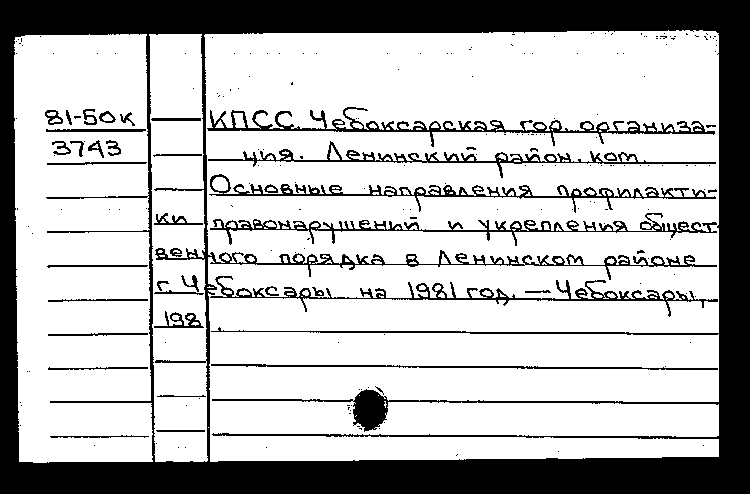 81-50к КПСС. Чебоксарская гор. организа-
3743 ция. Ленинский район. ком.
Основные направления профилакти-
ки правонарушений и укрепления общест
венного порядка в Ленинском районе
г. Чебоксары на 1981 год. — Чебоксары,
198 .